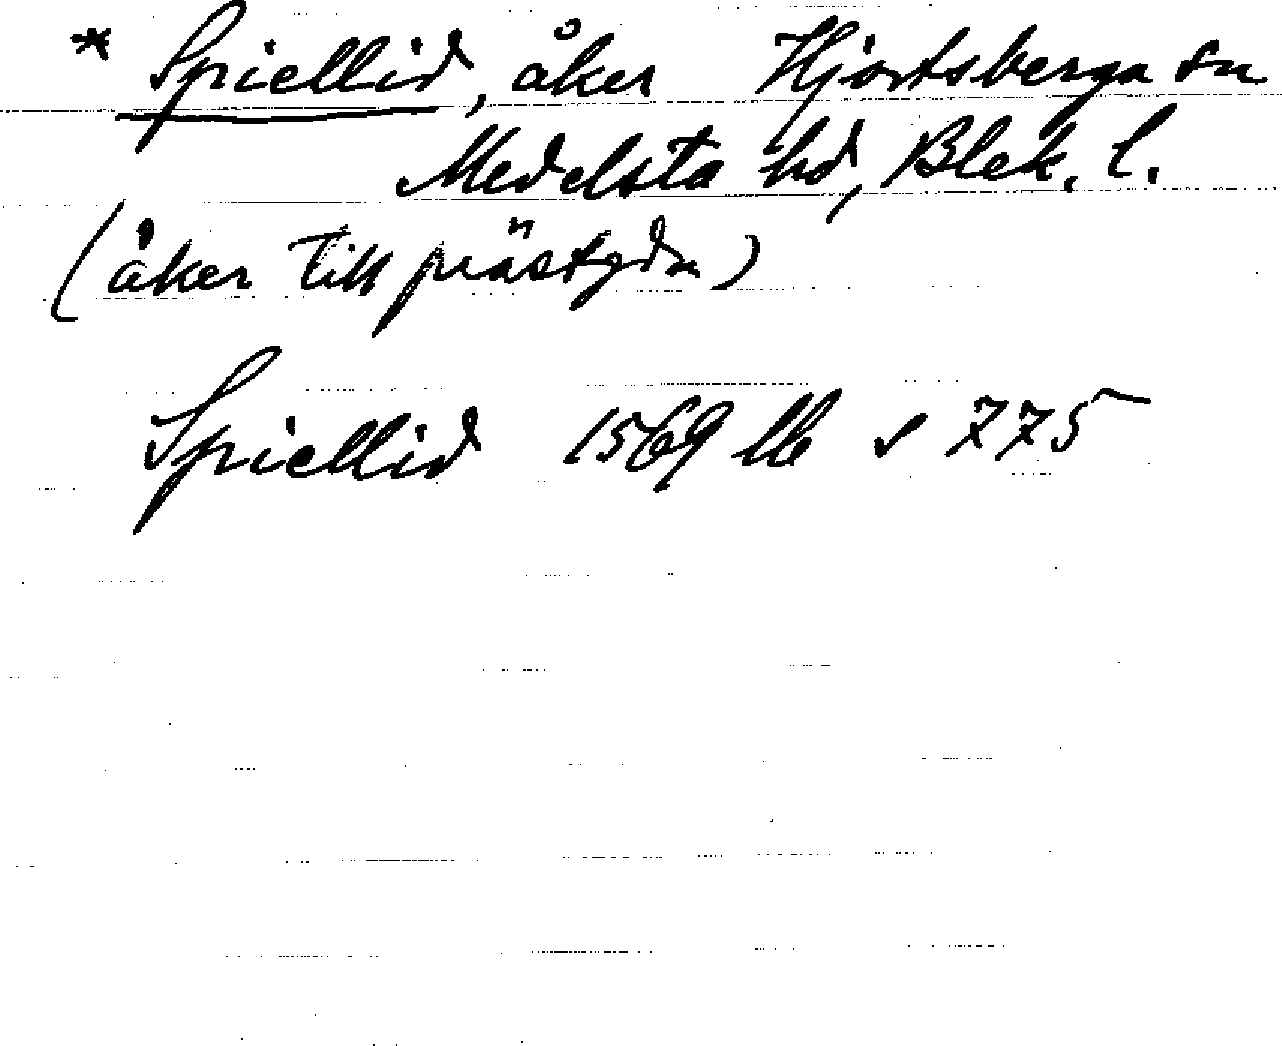 * Spiellid, åker Hjortsberga sn
Medelsta hd, Blek. l.
(åker till prästgdn)
Spiellid 1569 lb s 775